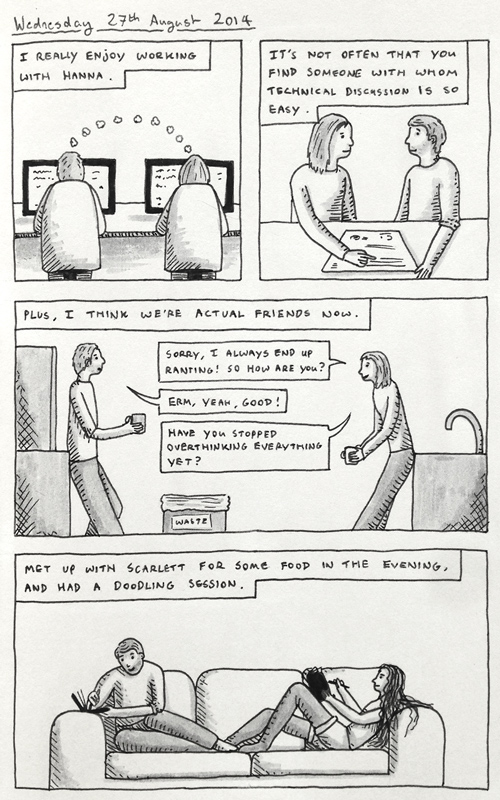 Wednesday 27th August 2014
I REALLY ENJOY WORKING
WITH HANNA.
IT'S NOT OFTEN THAT YOU
FIND SOMEONE WITH WHOM
TECHNICAL DISCUSSION IS SO
EASY.
PLUS, I THINK WE'RE ACTUAL FRIENDS NOW.
SORRY, I ALWAYS END UP
RANTING! SO HOW ARE YOU?
ERM, YEAH, GOOD!
HAVE YOU STOPPED
OVERTHINKING EVERYTHING
YET?
WASTE
MET UP WITH SCARLETT FOR SOME FOOD IN THE EVENING,
AND HAD A DOODLING SESSION.